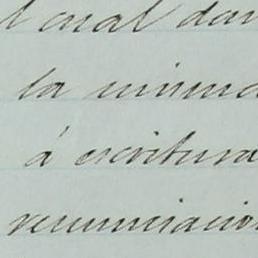 l cual dar
la misma
á escritura
renunciacion